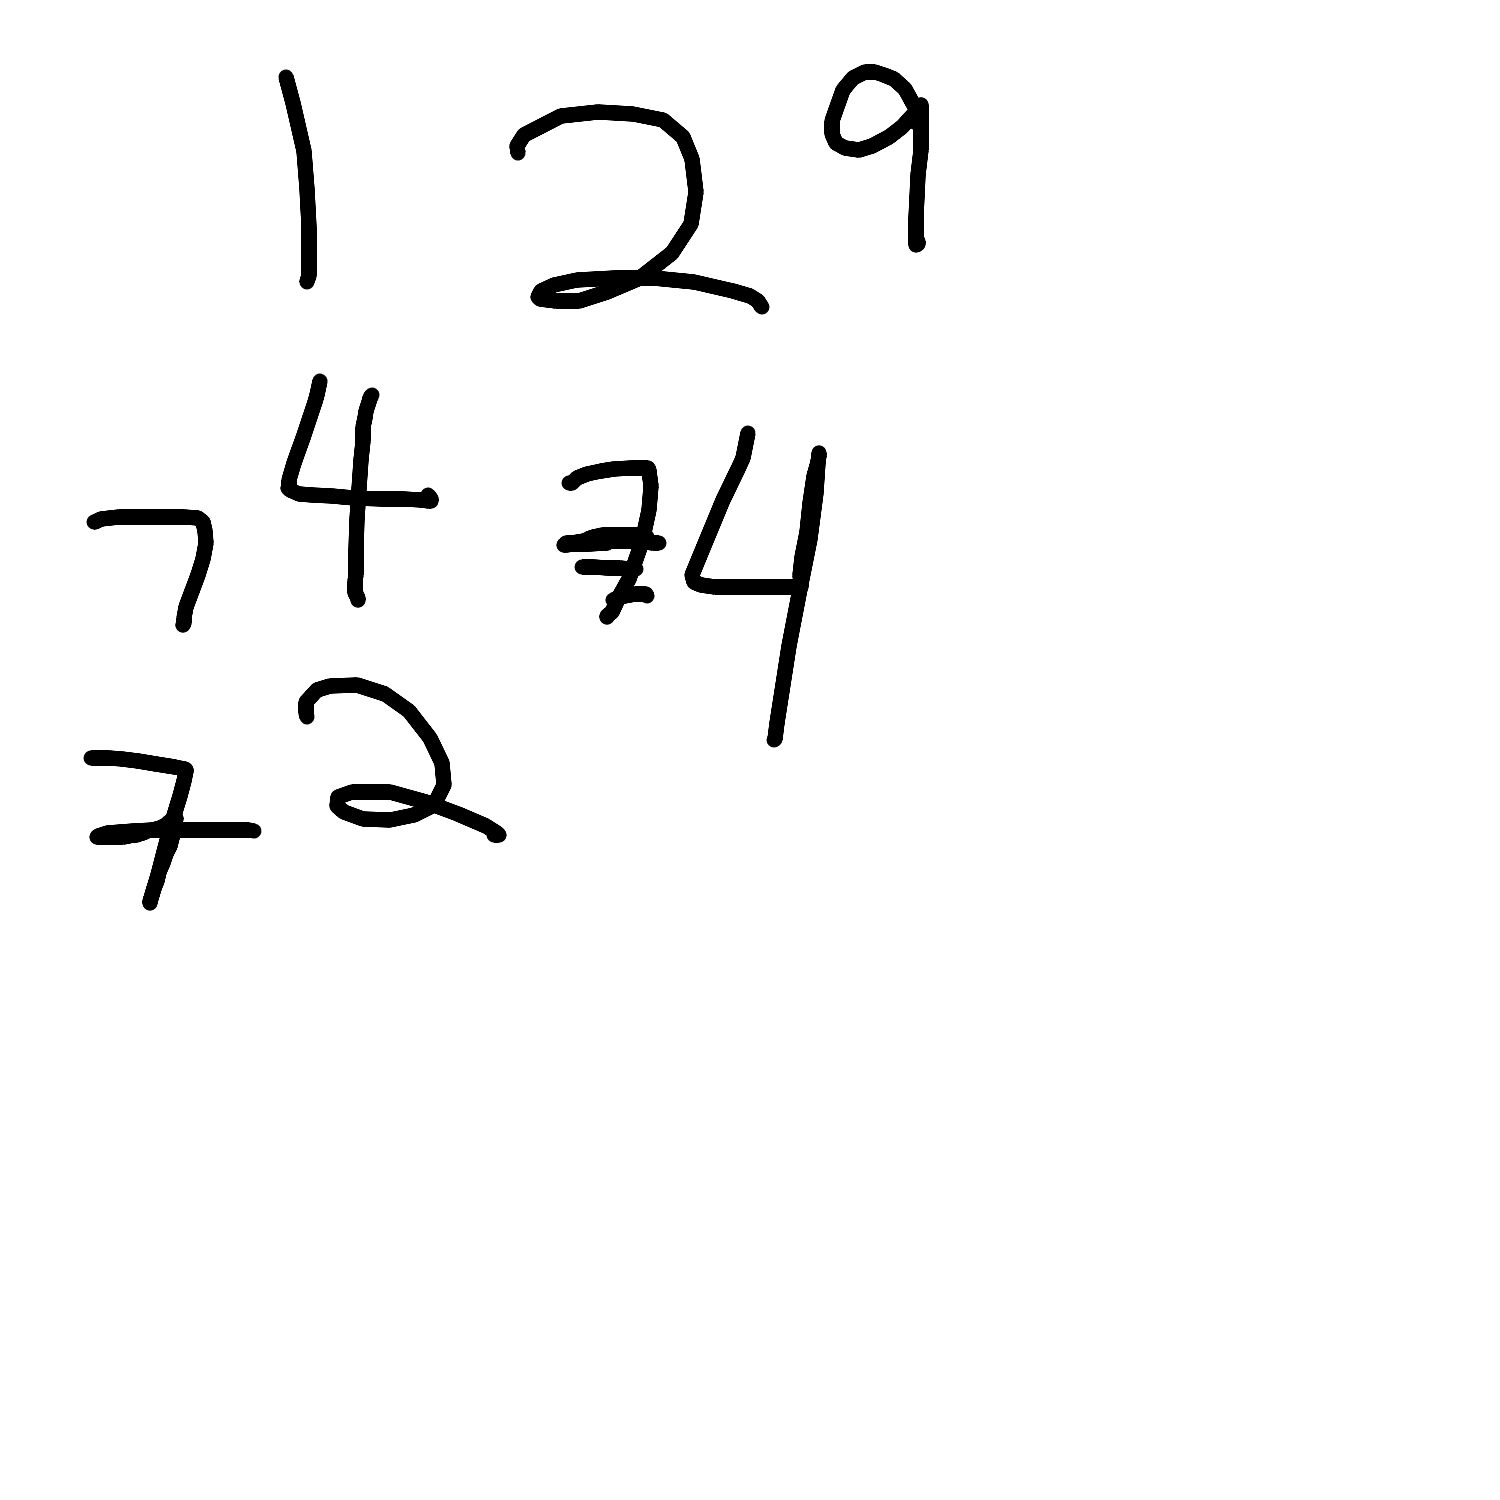 1 2 9
7 4 7 4
7 2